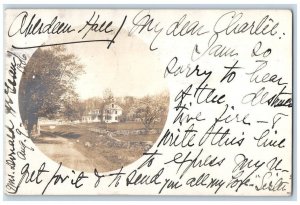 Aberdeen Hall
My dear Charlie:
I am so
sorry to hear
of the destruc
tive fire - I
write this line
to express my re
gret for it & to send you all my love
Aug. 9